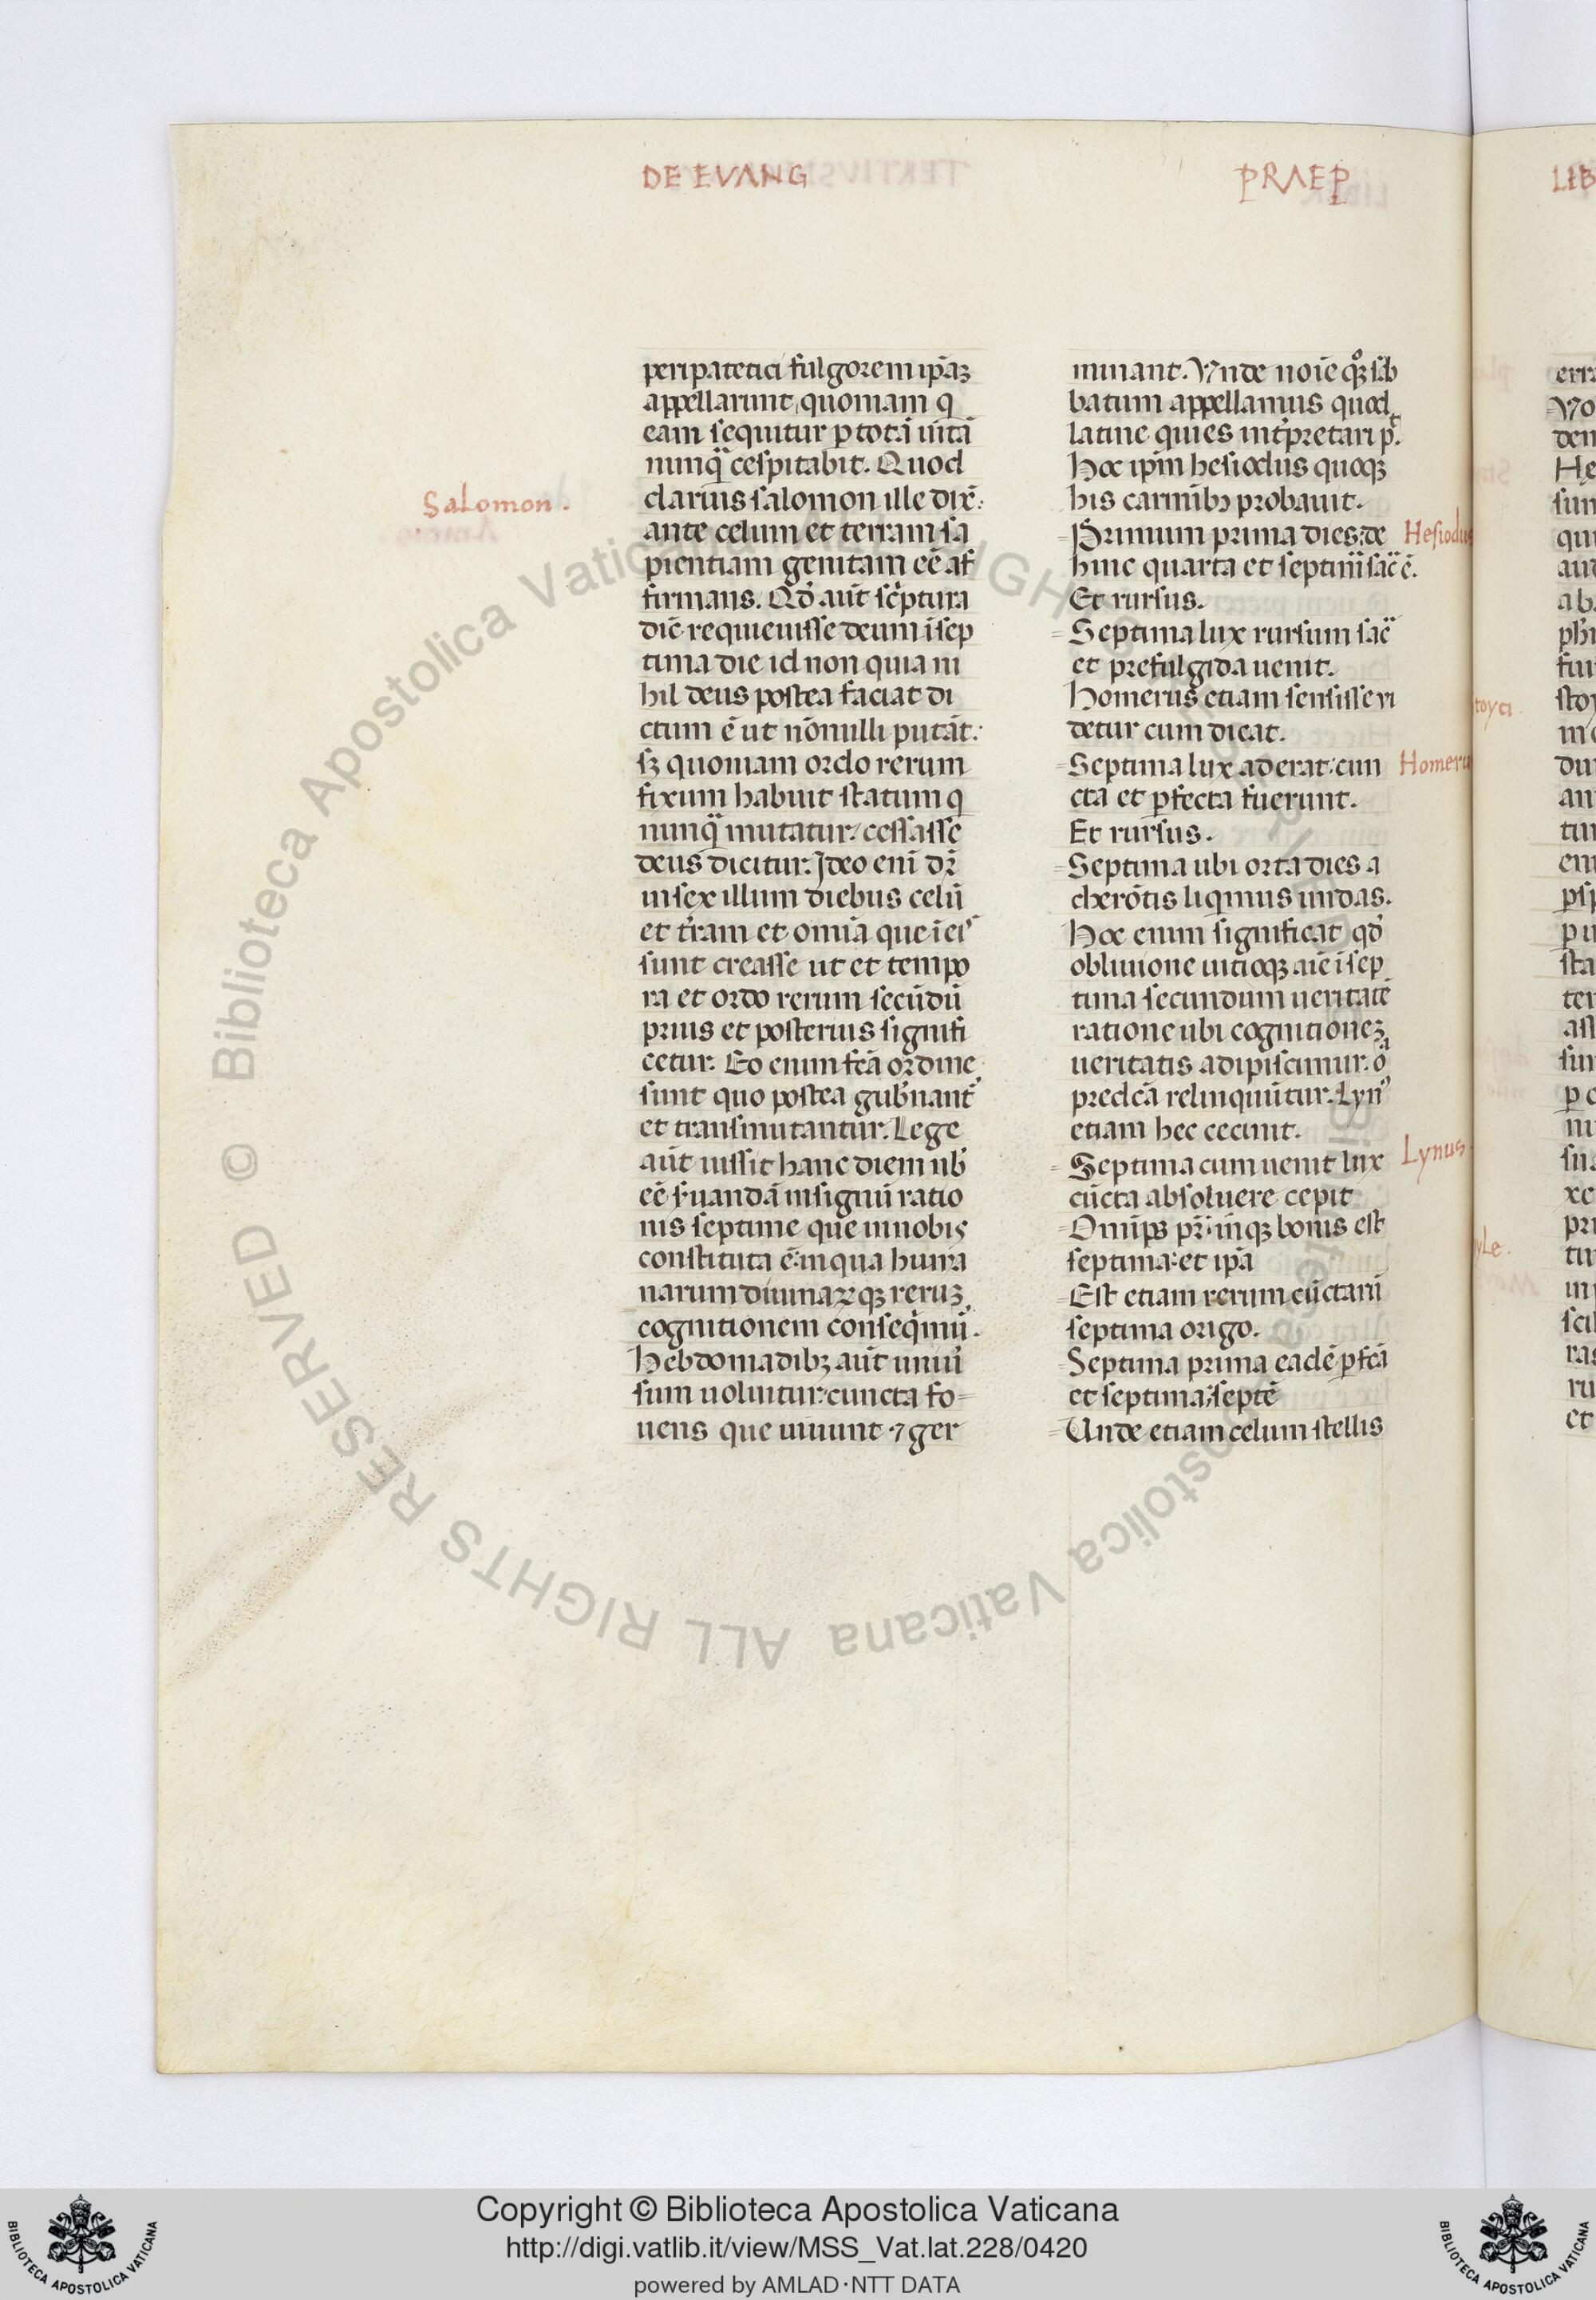 DE EVANG
PRAEP
peripatetici fulgorem ip̄aꝫ
appellarunt, quoniam q
eam sequitur ꝑ totā uitā
nunq̈ cespitabit. Quod
Salomon.
clarius salomon ille dix̄:
ante celum et terram sa
pientiam genitam eē af
firmans. Qd̓ aūt scͥptura
diē requieuisse deum ī sep
tima die id non quia ni
hil deus postea faciat di
ctum ē ut nōnulli putāt:
sꝫ quoniam ordo rerum
fixum habuit statum q
nunq̈ mutatur: cessasse
deus dicitur: Ideo enī dr̄
in sex illum diebus celū
et t̓ram et omīa que ī eis
sunt creasse ut et tempo
ra et ordo rerum secūdū
prius et posterius signifi
cetur. Eo enim fcā ordine
sunt quo postea gub̓nant̓
et transmutantur. Lege
aūt iussit hanc diem nb̓
eē s̓uandā insigniū ratio
nis septime que in nobis
constituta ē: in qua huma
narum diuinaꝝqꝫ reruꝫ
cognitionem conseqͥmū.
Hebdomadibꝫ aūt uniū
sum uoluitur: cuncta fo-
uens que uiuunt ⁊ ger
minant. Vnde noīe qͦqꝫ sab
batum appellamus quod
latine quies int̓pretari p̄t.
Hoc ip̄m hesiodus quoqꝫ
his carmībꝫ probauit.
Primum prima dies: de
Hesiodus
hinc quarta et septimä sac̈ ē.
Et rursus.
Septima lux rursum sac̈
et prefulgida uenit.
Homerus etiam sensisse vi
detur cum dicat.
Septima lux aderat: cun
Homeru
cta et ꝑfecta fuerunt.
Et rursus.
Septima ubi orta dies a
cherōtis liqͥmus undas.
Hoc enim significat qd̓
obliuione uitioqꝫ aīe ī sep
tima secundum ueritatē
ratione ubi cognitioneꝫ
ueritatis adipiscimur. oīa
predcā relinquūtur. Lynꝰ
etiam hec cecinit.
Lynus
Septima cum uenit lux
cūcta absoluere cepit
Omīps pr̄: inqꝫ bonis est
septima: et ip̄a
Est etiam rerum cūctarū
septima origo.
Septima prima eadē ꝑfcā
et septima: septē
Unde etiam celum stellis
LIB
toyci.
yle.
Copyright © Biblioteca Apostolica Vaticana
http://digi.vatlib.it/view/MSS_Vat.lat.228/0420
powered by AMLAD·NTT DATA
© Biblioteca Apostolica Vaticana ALL RIGHTS RESERVED
BIBLIOTECA APOSTOLICA VATICANA
BIBLIOTECA APOSTOLICA VATICANA